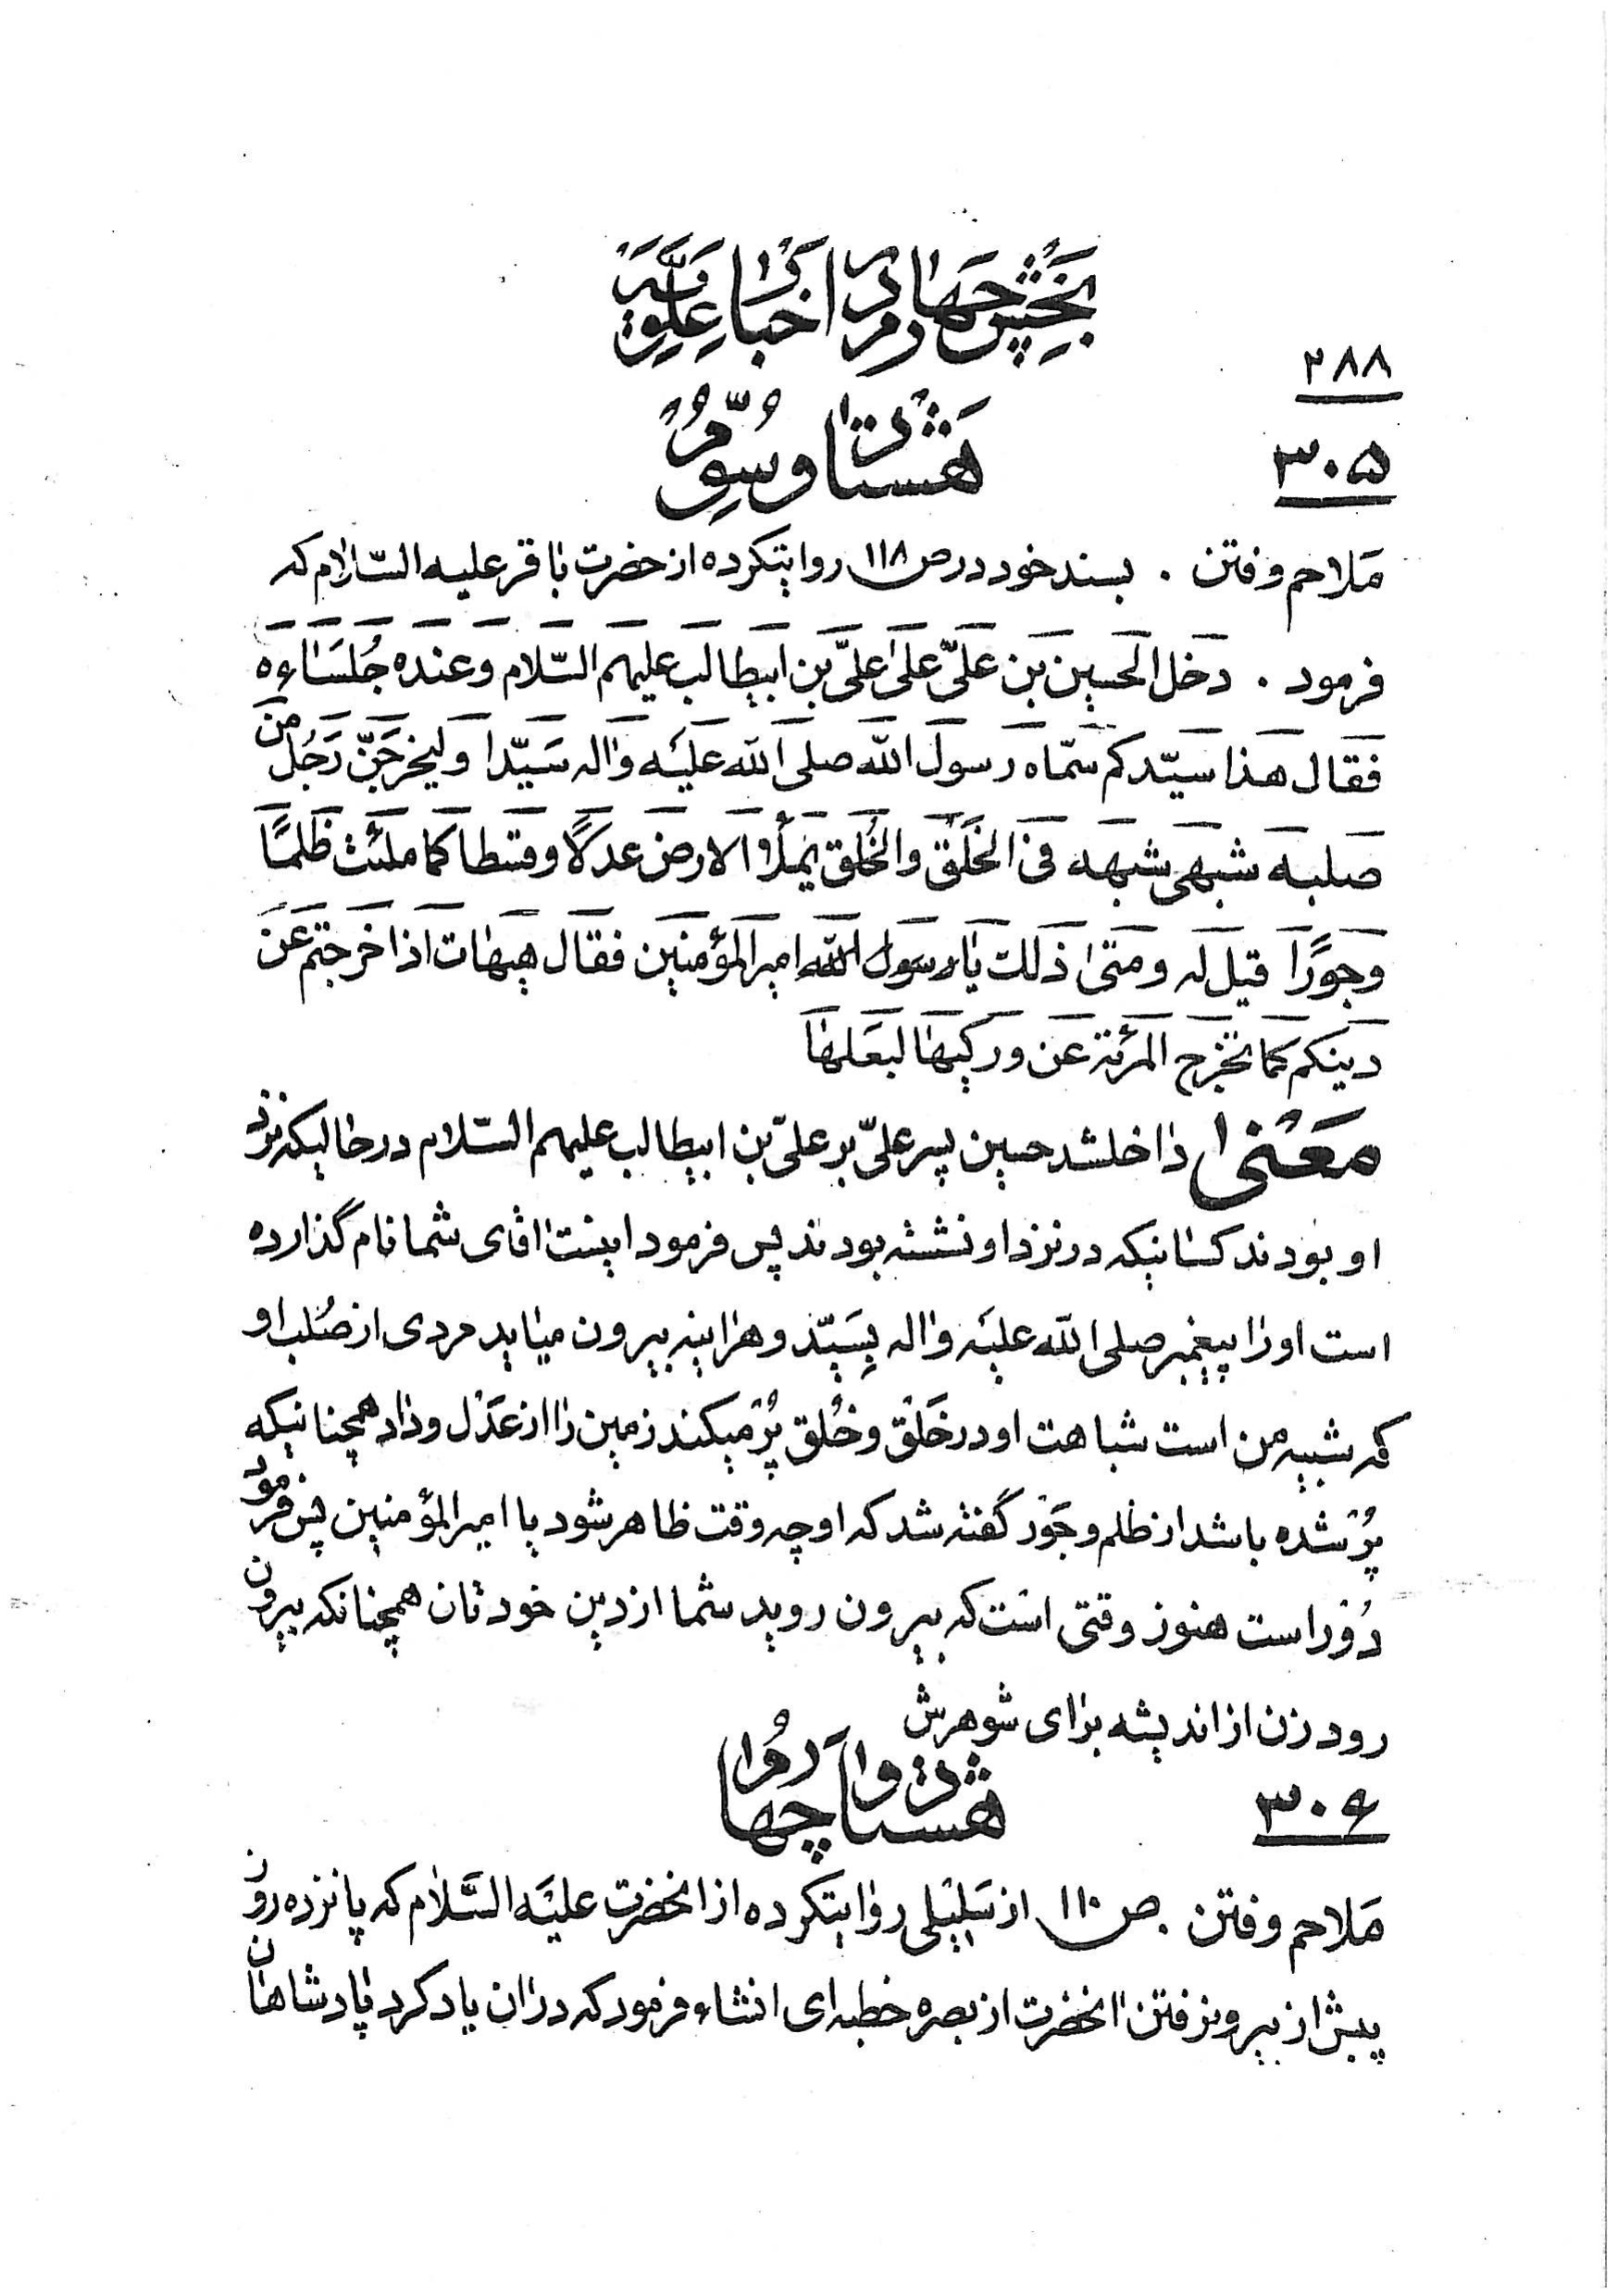 بخش چهارم در اخبار علویّه
۲۸۸
هشتاد و سوّم
۳۰۵
مَلاحم و فتن . بسند خود در ص ۱۱۸ روایتکرده از حضرت باقر علیه السّلام که
فرمود . دَخل الحسین بن عَلیّ عَلیٰ علیّ بن ابیطالب علیهم السّلام وَعنده جُلسَاءه
فَقال هَذا سیّدکم سَمّاه رَسول الله صلی الله عَلیَه وَاله سَیّدا وَلیخرجَنّ رَجُل من
صَلبه شبهی شبهه فی الخَلق والخُلق یَملأ الارض عدلًا وقسطا کما ملئت ظلمًا
وَجَورًا قیل له ومَتی ذلک یا رسول الله امیر المؤمنین فقال هیهات اذا خرجتم عَن
دینکم کما تخرج المرئة عَن ورکیها لبَعلها
مَعنی داخلشد حسین پسر علیّ بر علیّ بن ابیطالب علیهم السّلام در حالیکه نزد
او بودند کسانیکه در نزد او نشسته بودند پس فرمود اینست اقای شما نام گذارده
است او را پیغمبر صلی الله علیه واله بِسَیّد و هراینه بیرون میاید مردی از صُلب او
که شبیه من است شباهت او در خَلق و خُلق پُر میکند زمین را از عَدل و داد همچنانیکه
پُر شده باشد از ظلم و جَور گفته شد که او چه وقت ظاهر شود یا امیر المؤمنین پس فرمود
دُور است هنوز وقتی است که بیرون روید شما از دین خودتان همچنانکه بیرون
رود زن از اندیشه برای شوهرش
هشتاد و چهارم
۳۰۶
مَلاحم و فتن . ص ۱۱۰ از سَلیلی روایتکرده از انحضرت عَلیَه السَّلام که پانزده روز
پیش از بیرونرفتن انحضرت از بصره خطبه ای انشاء فرمود که در ان یاد کرد پادشاهان